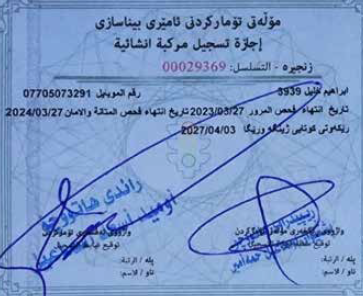 مۆڵەتی تۆمارکردنی ئامێری بیناسازی
إجازة تسجيل مركبة انشائية
زنجیره - التسلسل: 00029369
ابراهيم خليل 3939 رقم الموبيل 07705073291
تاريخ انتهاء فحص المرور 2023/03/27 تاريخ انتهاء فحص المتانة والامان 2024/03/27
ڕێکەوتی کۆتایی ژینگە وڕێگا 2027/04/03
ڕائدی هاتووچۆ
توقيع
پله / الرتبة:
ناو / الاسم:
پله / الرتبة:
ناو / الاسم: